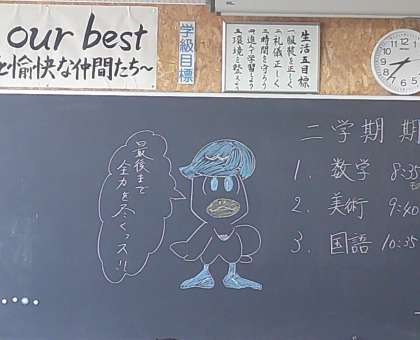 our best
と愉快な仲間たち～
学級目標
生活五目標
一服装を正しく
二礼儀正しく
三時間を守ろう
四進んで学習しよう
五環境を整えよう
最後まで
全力を尽くっス!!
二学期 期
1. 数学 8:35
2. 美術 9:40
3. 国語 10:35